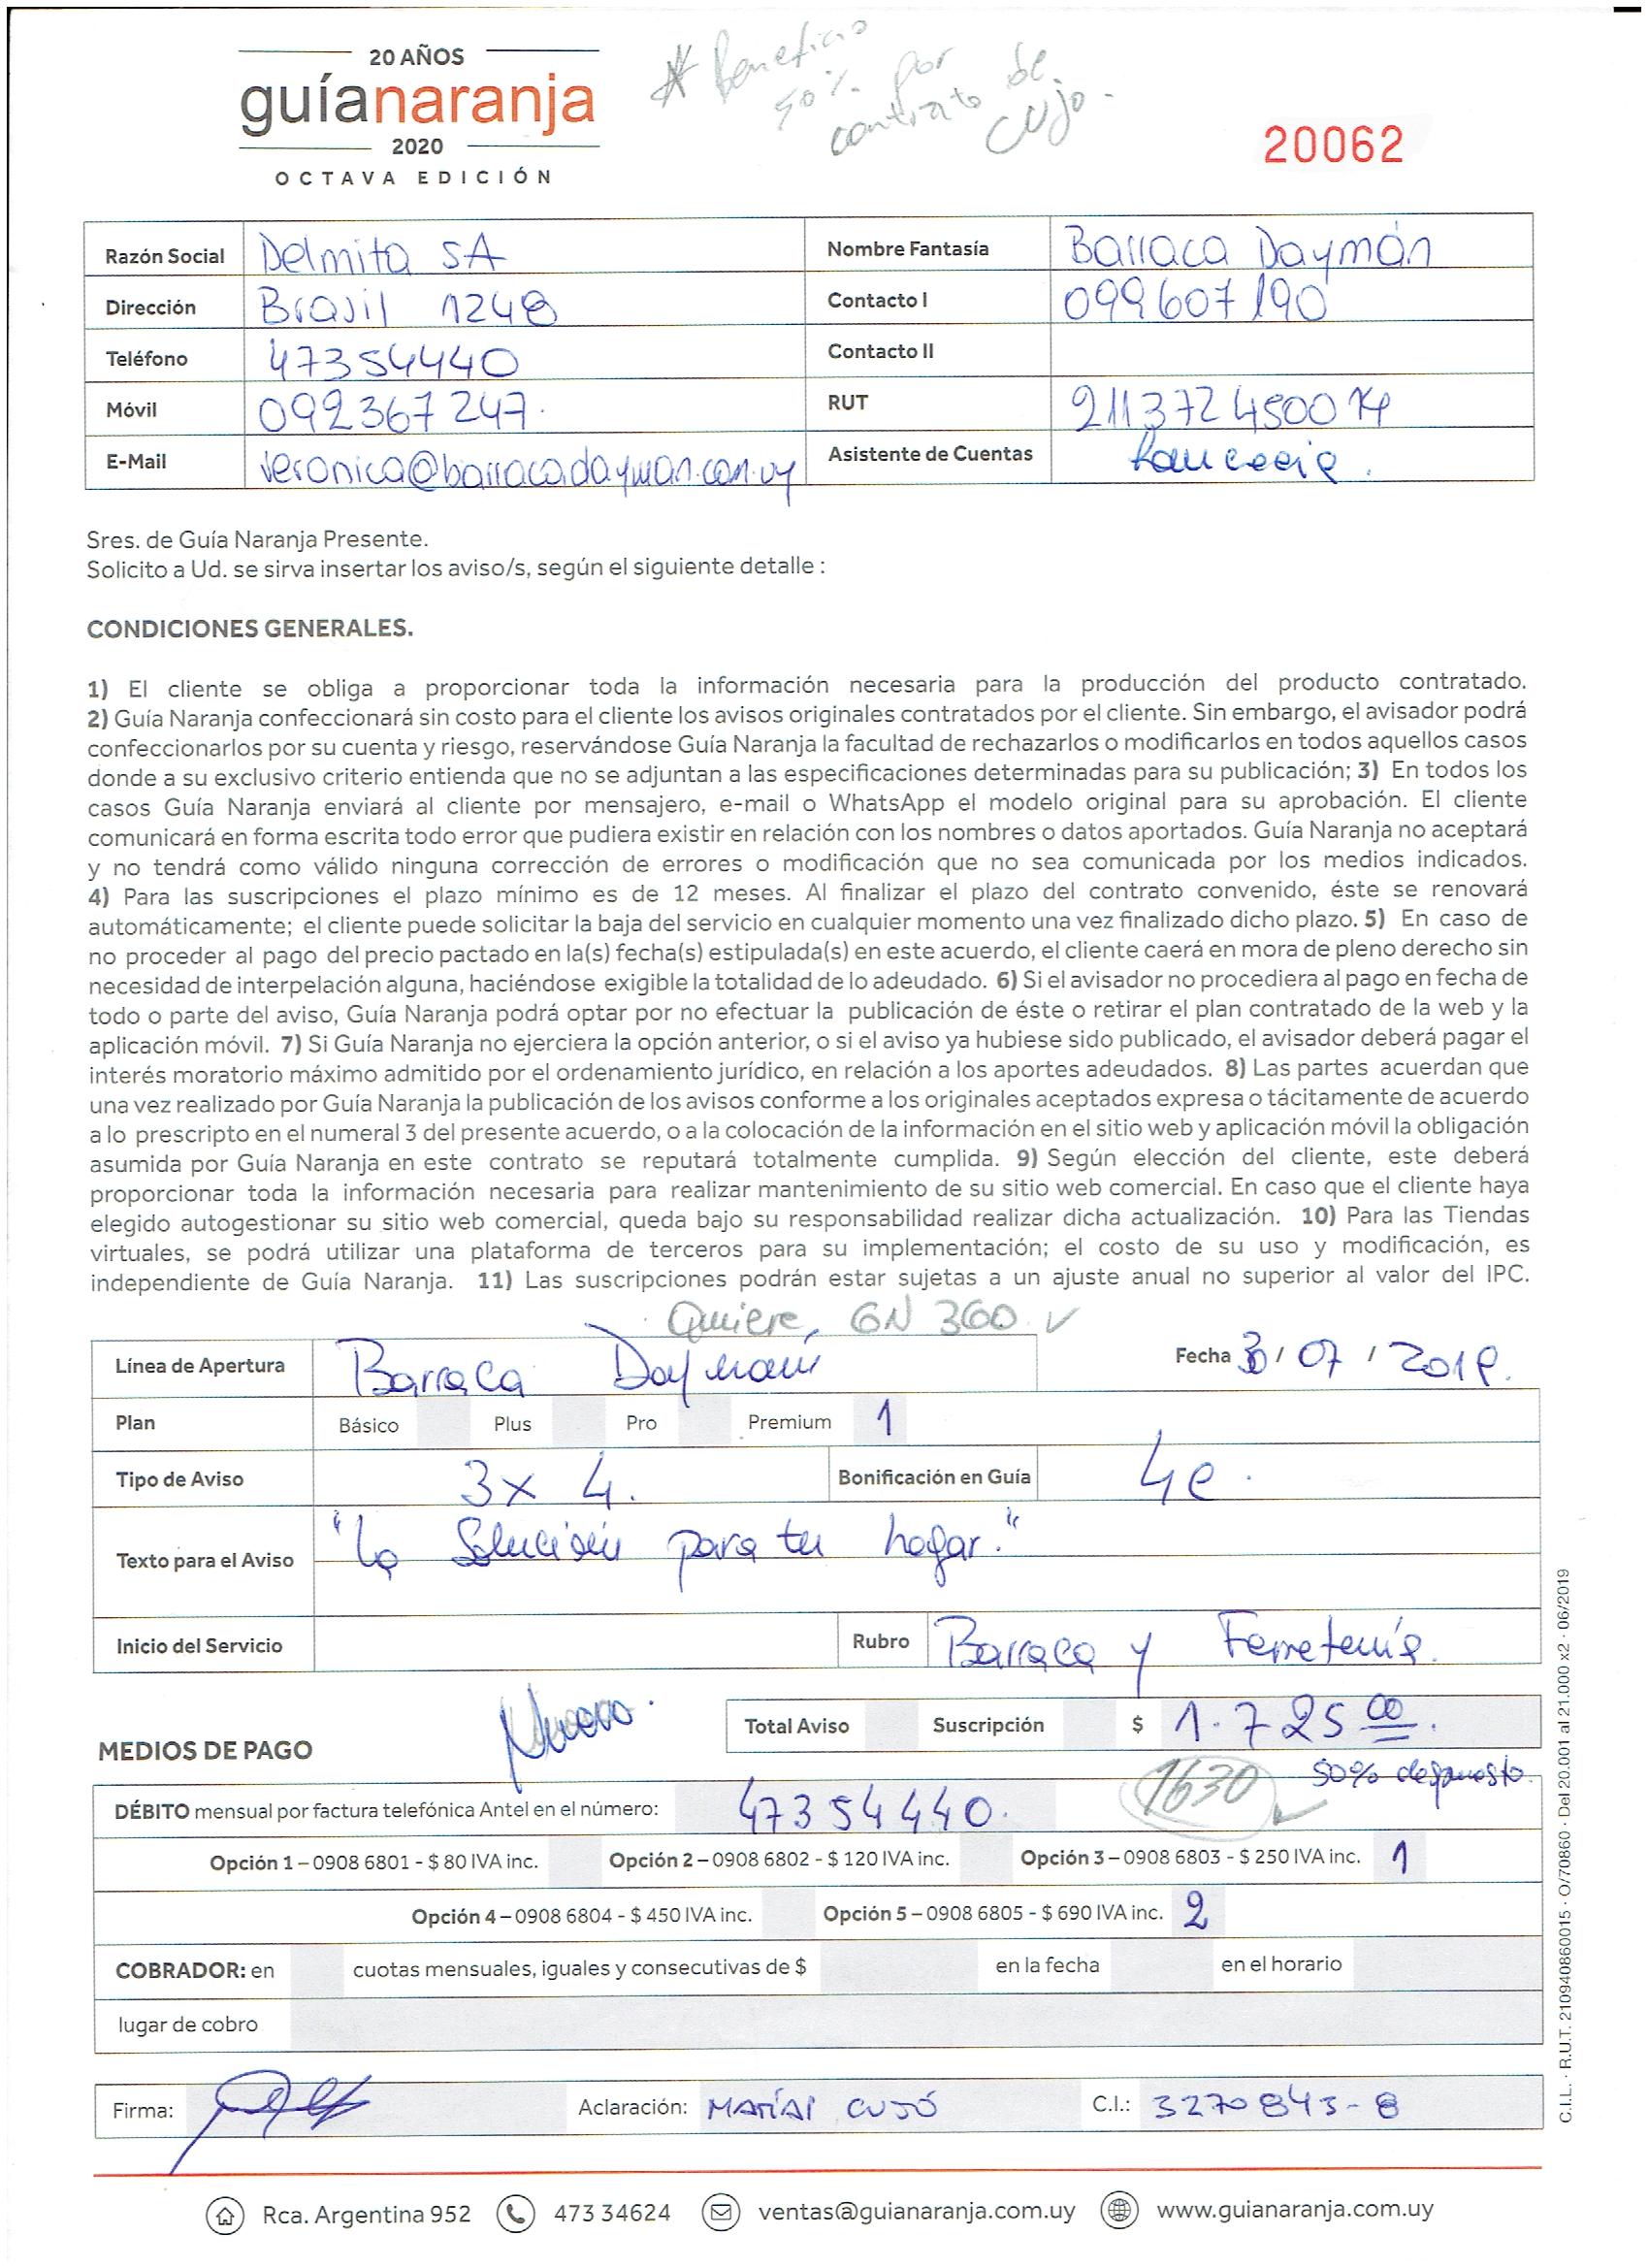 20 AÑOS
guíanaranja
2020
OCTAVA EDICIÓN
* Beneficio
50% por
contrato de
Cujo.
20062
Razón Social Delmita SA Nombre Fantasía Barraca Daymán
Dirección Brasil 1248 Contacto I 099607190
Teléfono 47354440 Contacto II
Móvil 092367247. RUT 211372450014
E-Mail veronica@barracadayman.com.uy Asistente de Cuentas
Sres. de Guía Naranja Presente.
Solicito a Ud. se sirva insertar los aviso/s, según el siguiente detalle :
CONDICIONES GENERALES.
1) El cliente se obliga a proporcionar toda la información necesaria para la producción del producto contratado.
2) Guía Naranja confeccionará sin costo para el cliente los avisos originales contratados por el cliente. Sin embargo, el avisador podrá
confeccionarlos por su cuenta y riesgo, reservándose Guía Naranja la facultad de rechazarlos o modificarlos en todos aquellos casos
donde a su exclusivo criterio entienda que no se adjuntan a las especificaciones determinadas para su publicación; 3) En todos los
casos Guía Naranja enviará al cliente por mensajero, e-mail o WhatsApp el modelo original para su aprobación. El cliente
comunicará en forma escrita todo error que pudiera existir en relación con los nombres o datos aportados. Guía Naranja no aceptará
y no tendrá como válido ninguna corrección de errores o modificación que no sea comunicada por los medios indicados.
4) Para las suscripciones el plazo mínimo es de 12 meses. Al finalizar el plazo del contrato convenido, éste se renovará
automáticamente; el cliente puede solicitar la baja del servicio en cualquier momento una vez finalizado dicho plazo. 5) En caso de
no proceder al pago del precio pactado en la(s) fecha(s) estipulada(s) en este acuerdo, el cliente caerá en mora de pleno derecho sin
necesidad de interpelación alguna, haciéndose exigible la totalidad de lo adeudado. 6) Si el avisador no procediera al pago en fecha de
todo o parte del aviso, Guía Naranja podrá optar por no efectuar la publicación de éste o retirar el plan contratado de la web y la
aplicación móvil. 7) Si Guía Naranja no ejerciera la opción anterior, o si el aviso ya hubiese sido publicado, el avisador deberá pagar el
interés moratorio máximo admitido por el ordenamiento jurídico, en relación a los aportes adeudados. 8) Las partes acuerdan que
una vez realizado por Guía Naranja la publicación de los avisos conforme a los originales aceptados expresa o tácitamente de acuerdo
a lo prescripto en el numeral 3 del presente acuerdo, o a la colocación de la información en el sitio web y aplicación móvil la obligación
asumida por Guía Naranja en este contrato se reputará totalmente cumplida. 9) Según elección del cliente, este deberá
proporcionar toda la información necesaria para realizar mantenimiento de su sitio web comercial. En caso que el cliente haya
elegido autogestionar su sitio web comercial, queda bajo su responsabilidad realizar dicha actualización. 10) Para las Tiendas
virtuales, se podrá utilizar una plataforma de terceros para su implementación; el costo de su uso y modificación, es
independiente de Guía Naranja. 11) Las suscripciones podrán estar sujetas a un ajuste anual no superior al valor del IPC.
Quiere, GN 360 ✓
Línea de Apertura Barraca Daymán Fecha / 07 / 2019.
Plan Básico Plus Pro Premium 1
Tipo de Aviso 3x 4. Bonificación en Guía 4e.
Texto para el Aviso "La Solución para tu hogar."
Inicio del Servicio Rubro Barraca y Ferretería.
Nuevo.
Total Aviso Suscripción $ 1.725 00.
MEDIOS DE PAGO
1630 ✓ 50% depuesto.
DÉBITO mensual por factura telefónica Antel en el número: 47354440.
Opción 1 – 0908 6801 - $ 80 IVA inc. Opción 2 – 0908 6802 - $ 120 IVA inc. Opción 3 – 0908 6803 - $ 250 IVA inc. 1
Opción 4 – 0908 6804 - $ 450 IVA inc. Opción 5 – 0908 6805 - $ 690 IVA inc. 2
COBRADOR: en cuotas mensuales, iguales y consecutivas de $ en la fecha en el horario
lugar de cobro
Firma: Aclaración: MATÍAS CUJÓ C.I.: 3270843-8
C.I.L. · R.U.T. 210940860015 · O/70860 · Del 20.001 al 21.000 x2 · 06/2019
Rca. Argentina 952 473 34624 ventas@guianaranja.com.uy www.guianaranja.com.uy